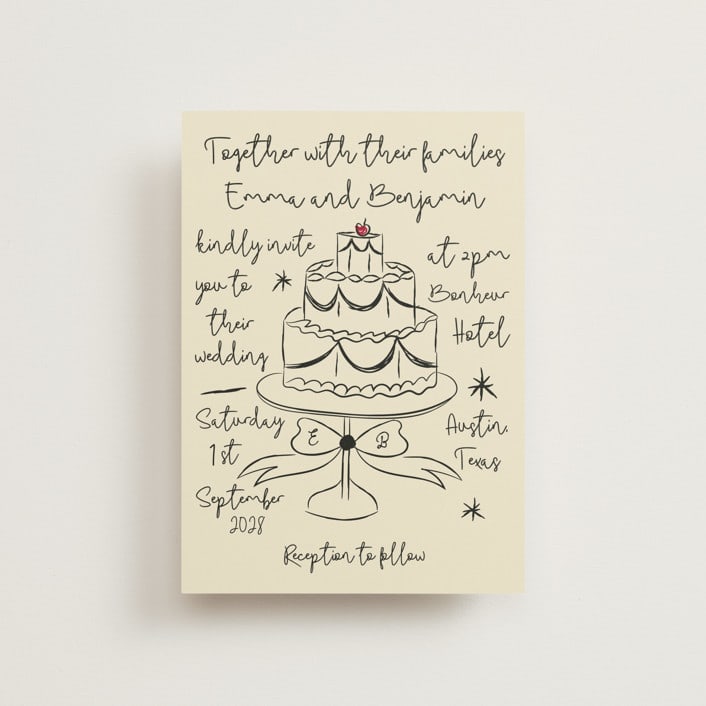 Together with their families
Emma and Benjamin
kindly invite
you to
their
wedding
at 2pm
Bonheur
Hotel
Saturday
1st
September
2028
Austin,
Texas
E B
Reception to follow